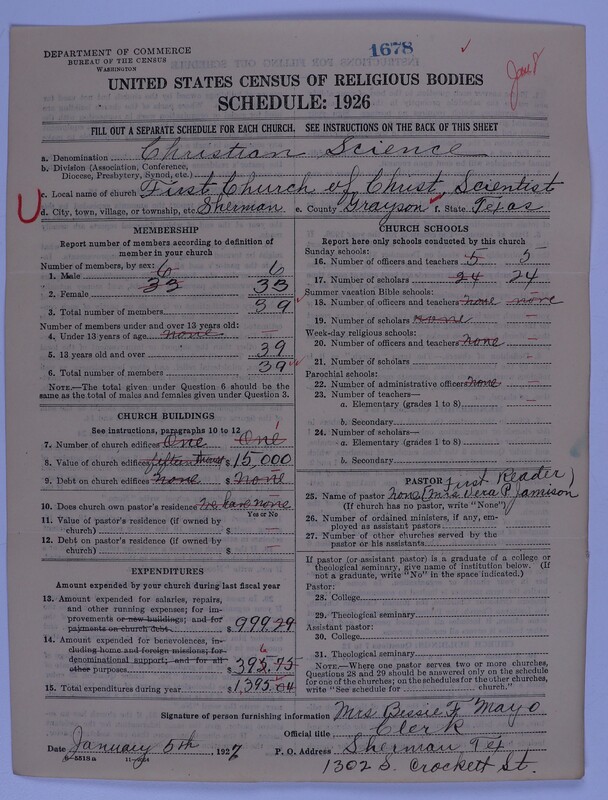 DEPARTMENT OF COMMERCE
BUREAU OF THE CENSUS
WASHINGTON
1678
Jan 8
UNITED STATES CENSUS OF RELIGIOUS BODIES
SCHEDULE: 1926
FILL OUT A SEPARATE SCHEDULE FOR EACH CHURCH. SEE INSTRUCTIONS ON THE BACK OF THIS SHEET
a. Denomination Christian Science
b. Division (Association, Conference, Diocese, Presbytery, Synod, etc.)
c. Local name of church First Church of Christ, Scientist
d. City, town, village, or township, etc. Sherman e. County Grayson f. State Texas
MEMBERSHIP
Report number of members according to definition of member in your church
Number of members, by sex:
1. Male 6 6
2. Female 33 33
3. Total number of members 39
Number of members under and over 13 years old:
4. Under 13 years of age none —
5. 13 years old and over 39
6. Total number of members 39
NOTE.—The total given under Question 6 should be the same as the total of males and females given under Question 3.
CHURCH BUILDINGS
See instructions, paragraphs 10 to 12
7. Number of church edifices One One 1
8. Value of church edifices fifteen thous $15,000
9. Debt on church edifices none $ none —
10. Does church own pastor's residence? We have none
Yes or No
11. Value of pastor's residence (if owned by church) $ —
12. Debt on pastor's residence (if owned by church) $ —
EXPENDITURES
Amount expended by your church during last fiscal year
13. Amount expended for salaries, repairs, and other running expenses; for improvements or new buildings; and for payments on church debt $ 999.29
14. Amount expended for benevolences, including home and foreign missions; for denominational support; and for all other purposes $ 395.75 6
15. Total expenditures during year $ 1,395.04
CHURCH SCHOOLS
Report here only schools conducted by this church
Sunday schools:
16. Number of officers and teachers 5 5
17. Number of scholars 24 24
Summer vacation Bible schools:
18. Number of officers and teachers none none
19. Number of scholars none —
Week-day religious schools:
20. Number of officers and teachers none —
21. Number of scholars —
Parochial schools:
22. Number of administrative officers none —
23. Number of teachers—
a. Elementary (grades 1 to 8) —
b. Secondary
24. Number of scholars—
a. Elementary (grades 1 to 8) —
b. Secondary
PASTOR First Reader
25. Name of pastor none (Mrs Vera P. Jamison)
(If church has no pastor, write "None")
26. Number of ordained ministers, if any, employed as assistant pastors
27. Number of other churches served by the pastor or his assistants
If pastor (or assistant pastor) is a graduate of a college or theological seminary, give name of institution below. (If not a graduate, write "No" in the space indicated.)
Pastor:
28. College
29. Theological seminary
Assistant pastor:
30. College
31. Theological seminary
NOTE.—Where one pastor serves two or more churches, Questions 28 and 29 should be answered only on the schedule for one of the churches; on the schedules for the other churches, write "See schedule for church."
Signature of person furnishing information Mrs Bessie F. Mayo
Official title Clerk
Date January 5th, 1927 P. O. Address Sherman Tex
1302 S. Crockett St.